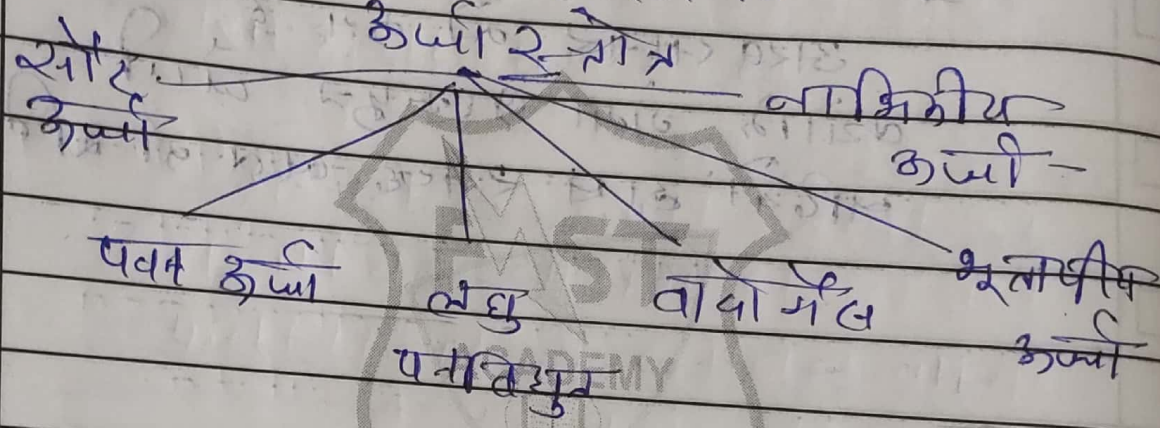 ऊर्जा स्त्रोत्र
सौर
ऊर्जा
नाभिकीय
ऊर्जा
पवन ऊर्जा
लघु
पनविधुत
वायोगैस
भूतापीय
ऊर्जा
FAST
ACADEMY